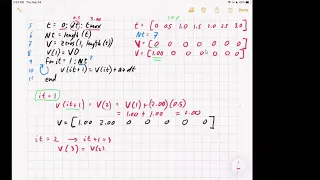 5 t = 0: dt: tmax t = [ 0 0.5 1.0 1.5 2.0 2.5 3.0 ]
6 Nt = length (t) Nt = 7
7 V = zeros (1, length (t)) V = [ 0 0 0 0 0 0 0 ]
8 V(1) = V0 V = [ 1.00 0 0 0 0 0 0 ]
9 for it = 1: Nt
10 V(it+1) = V(it) + a * dt
11 end
it = 1
V(it+1) = V(2) = V(1) + (2.00)(0.5)
= 1.00 + 1.00 = 2.00
V = [ 1.00 2.00 0 0 0 0 0 ]
it = 2 → it+1 = 3
V(3) = V(2)